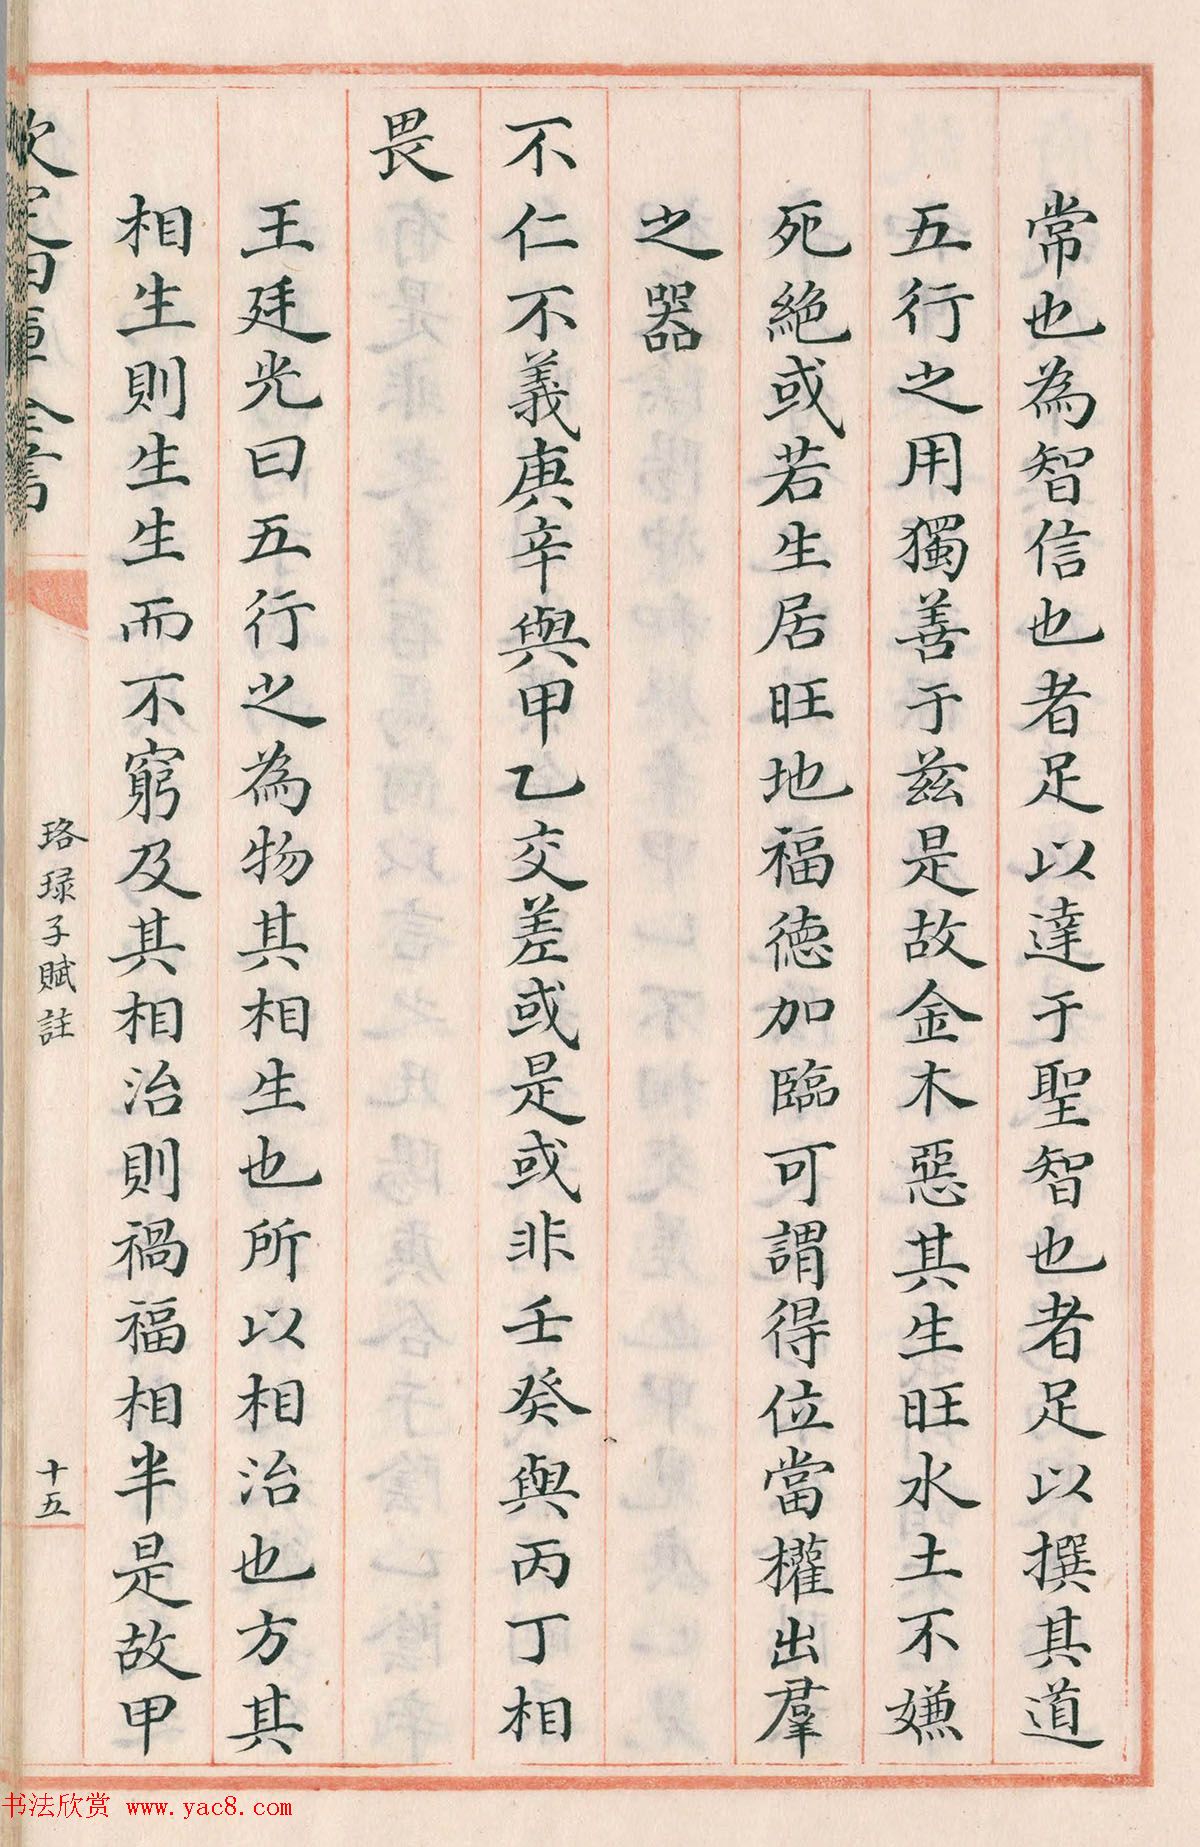 常也為智信也者足以達于聖智也者足以撰其道
五行之用獨善于兹是故金木惡其生旺水土不嫌
死絶或若生居旺地福德加臨可謂得位當權出羣
之器
不仁不義庚辛與甲乙交差或是或非壬癸與丙丁相
畏
王廷光曰五行之為物其相生也所以相治也方其
相生則生生而不窮及其相治則禍福相半是故甲
欽定四庫全書
珞琭子賦註
十五
书法欣赏 www.yac8.com